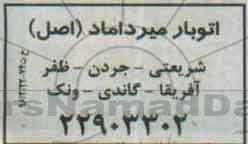 اتوبار میرداماد (اصل)
شریعتی - جردن - ظفر
آفریقا - گاندی - ونک
۲۲۹۰۳۳۰۲